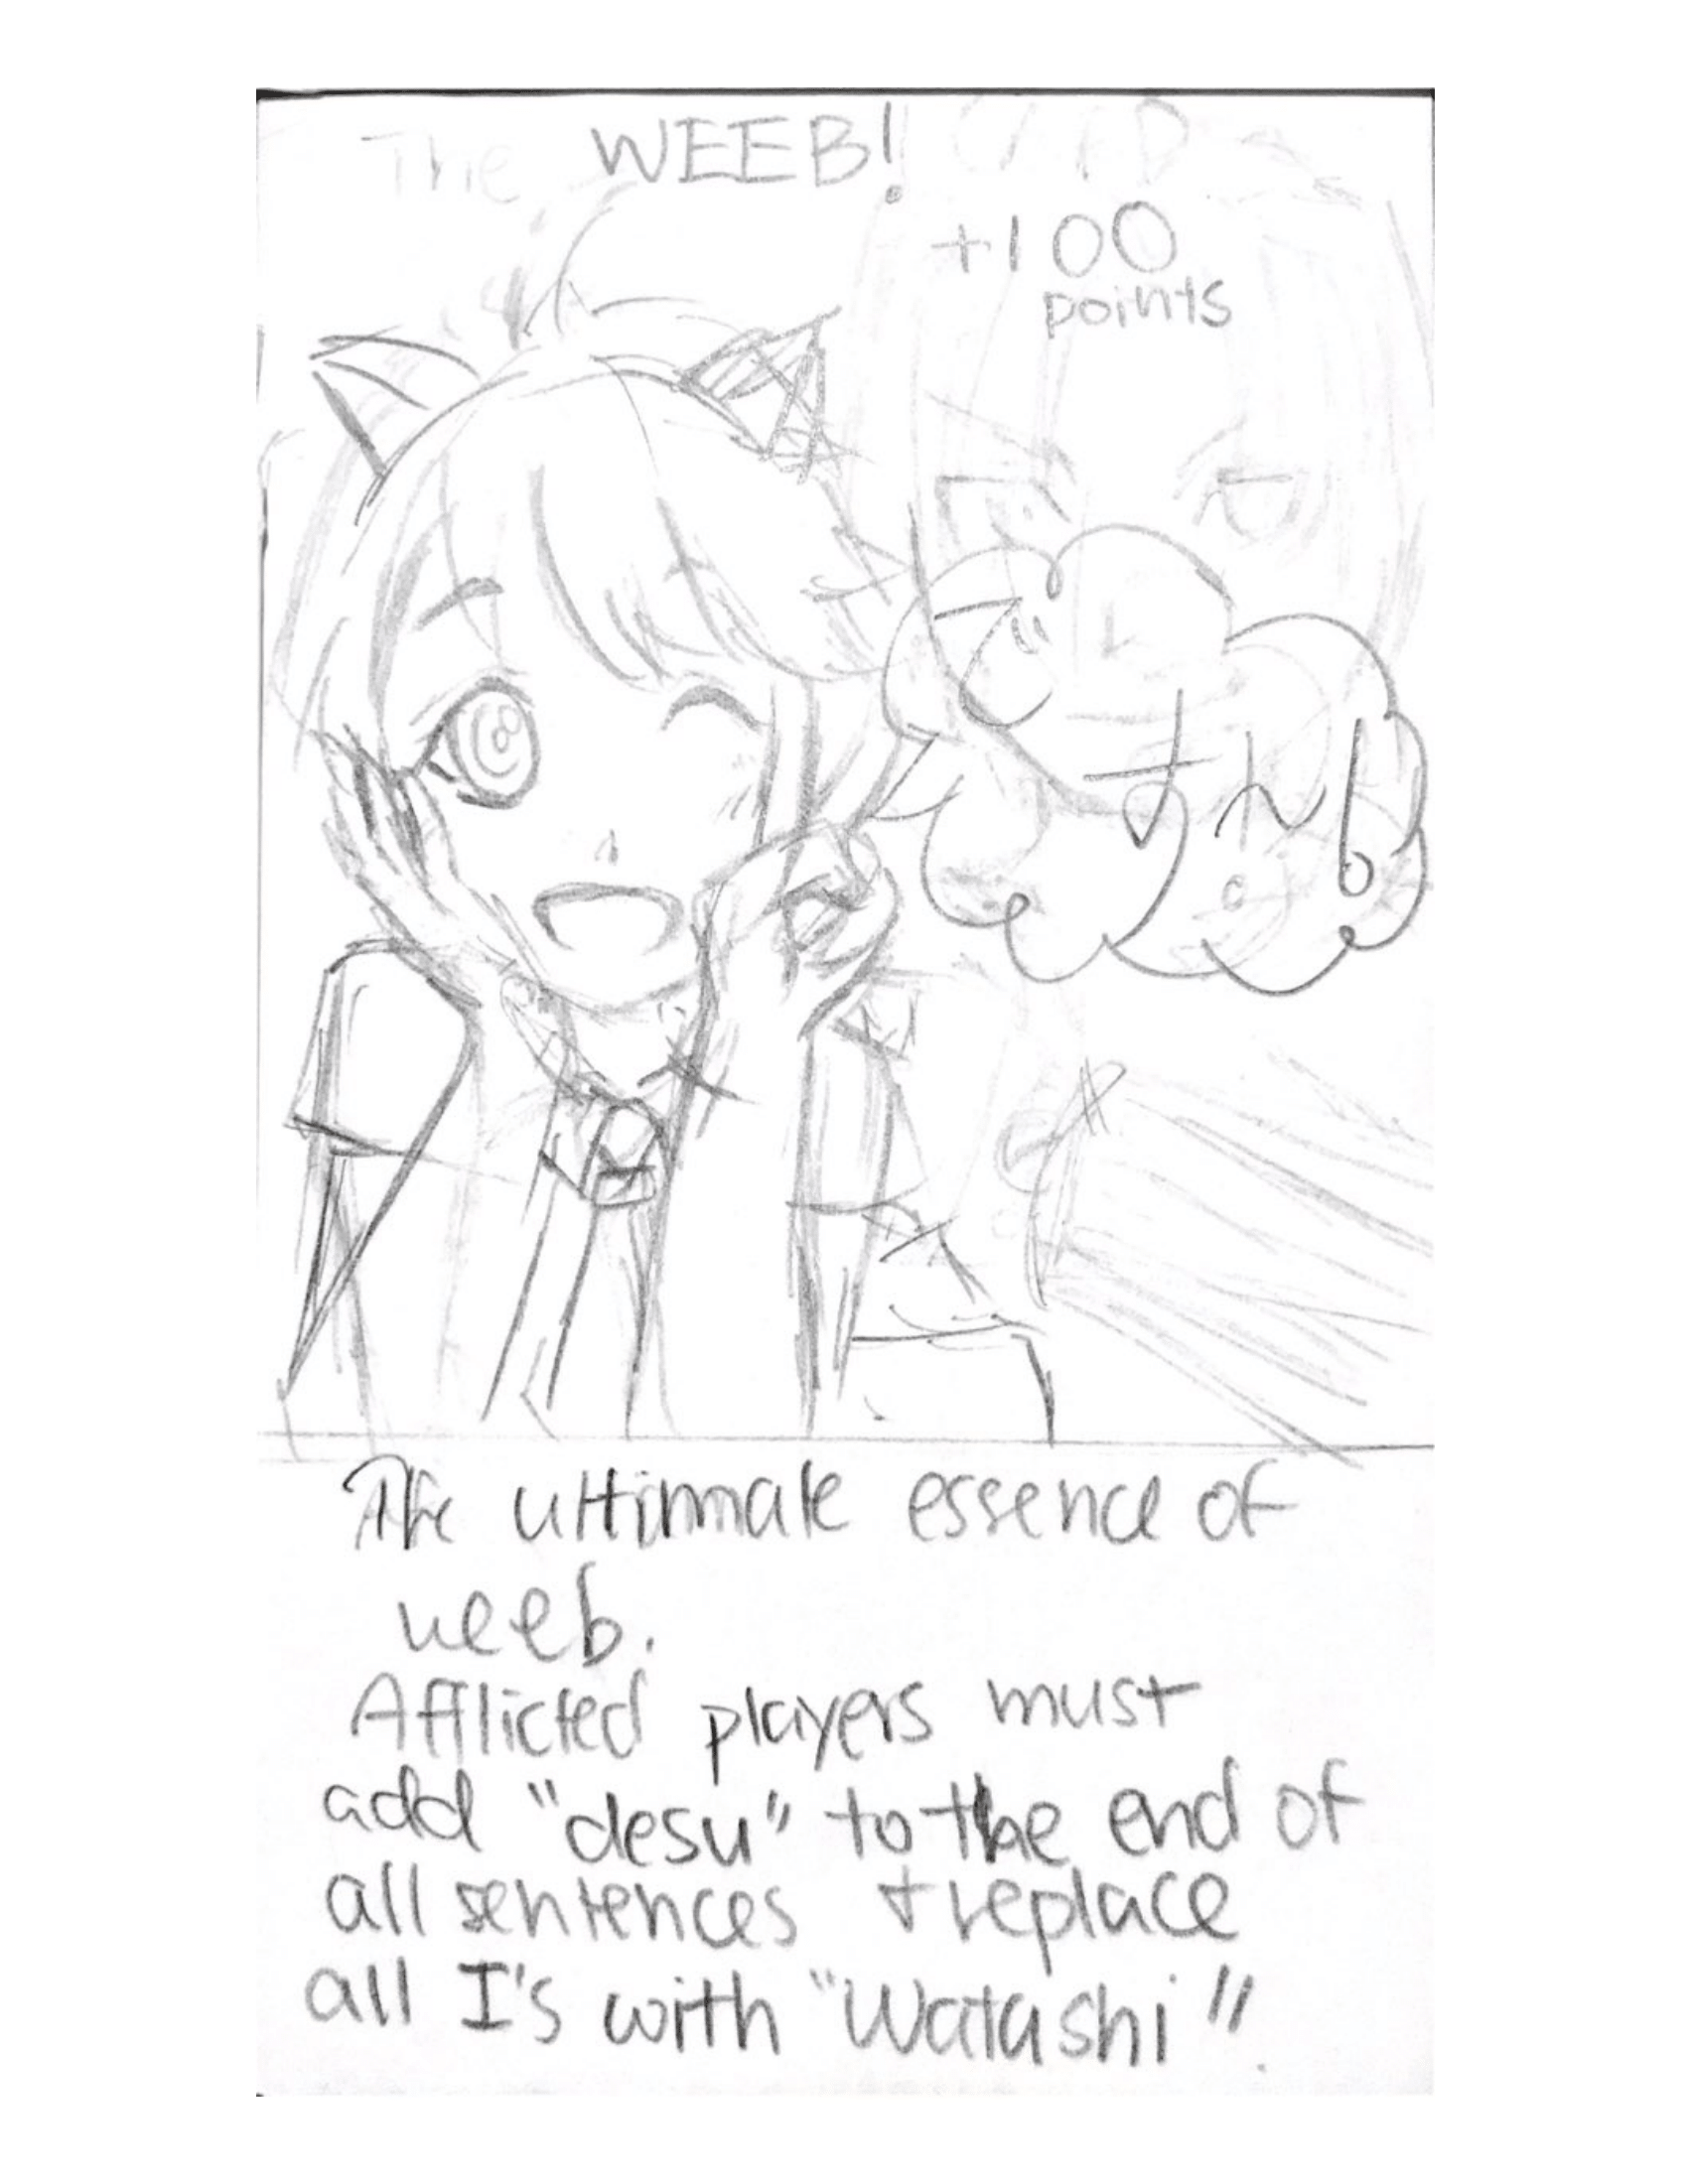 The WEEB!
+100
points
で
すヘ!
The ultimmate essence of
weeb.
Afflicted players must
add "desu" to the end of
all sentences + replace
all I's with "Watashi".